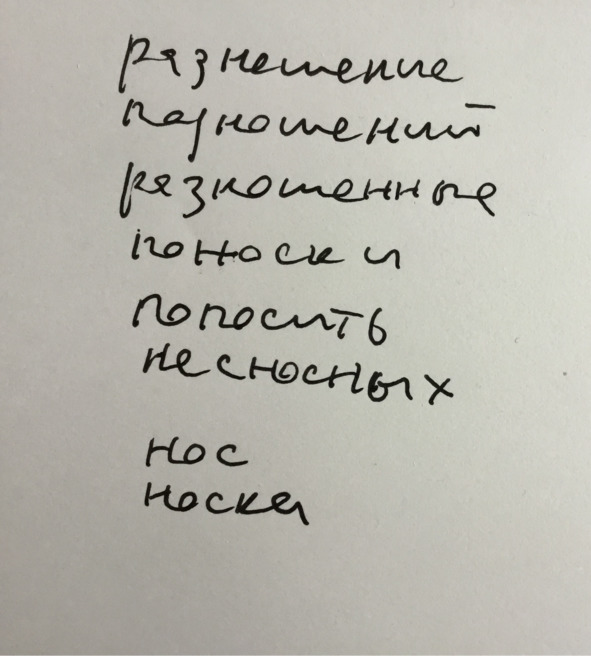 разнешение
подношений
разношенные
поноски
попосить
несносных
нос
носка